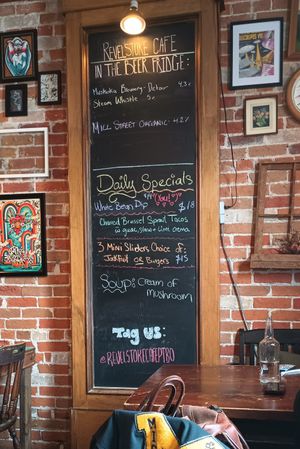 REVELSTOKE CAFE
IN THE BEER FRIDGE:
Muskoka Brewery: Detour 4.3%
Steam Whistle 5%
MILL STREET ORGANIC 4.2%
Daily Specials
White Bean Dip $18
Charred Brussel Sprout Tacos
w guac, slaw + lime crema
3 Mini Sliders Choice of:
Jackfruit OR Burgers $15
Soup: Cream of
mushroom
Tag US:
@REVELSTOKECAFEPTBO